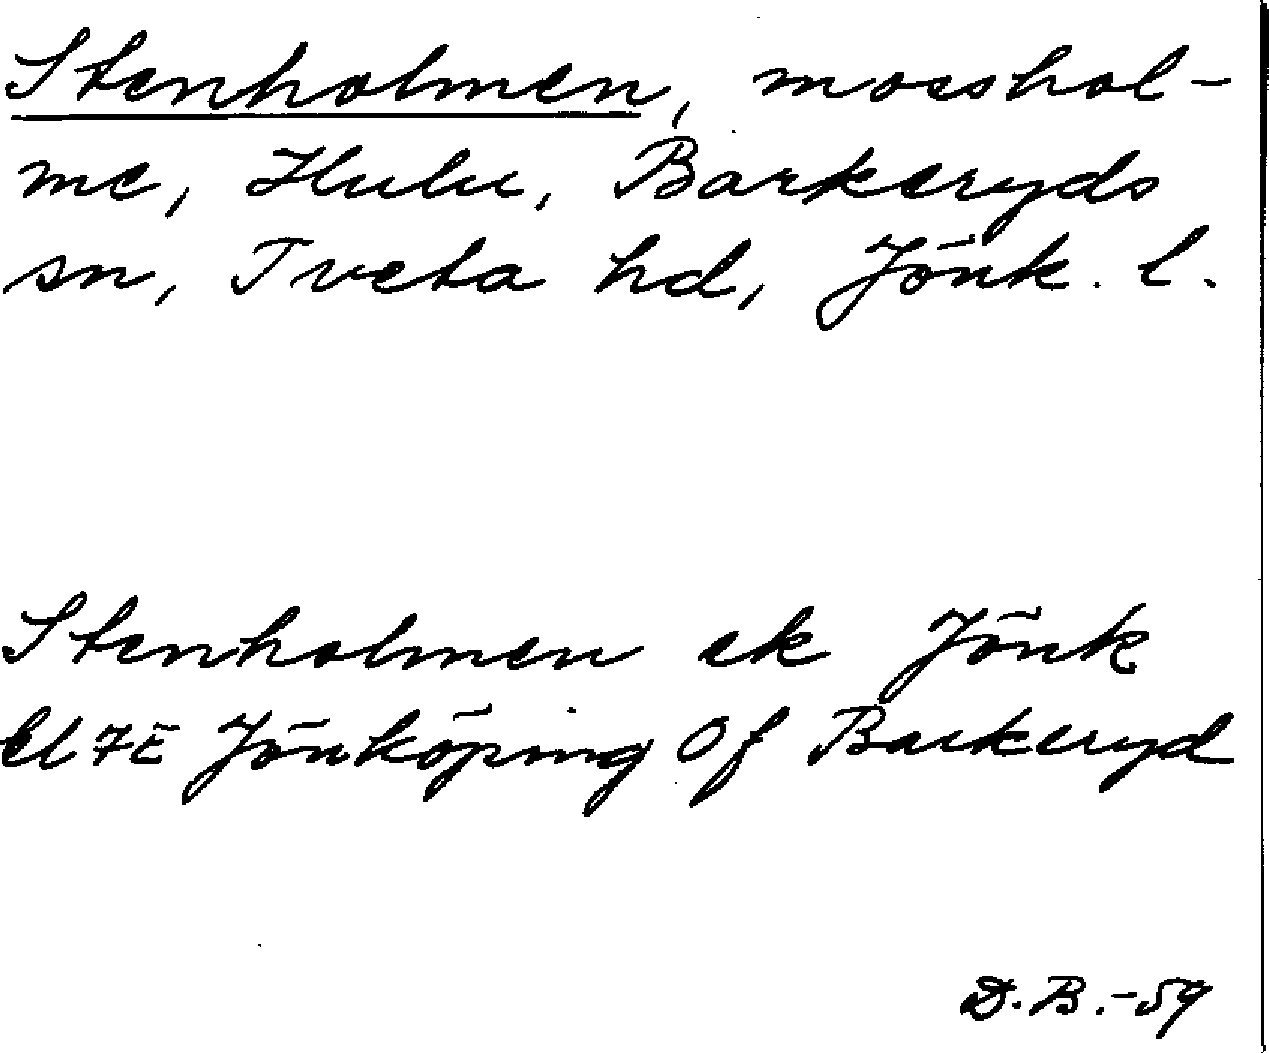 Stenholmen, mosshol-
me, Hulu, Barkeryds
sn, Tveta hd, Jönk. l.
Stenholmen ek Jönk
Bl 7E Jönköping Of Barkeryd
D.B.-59